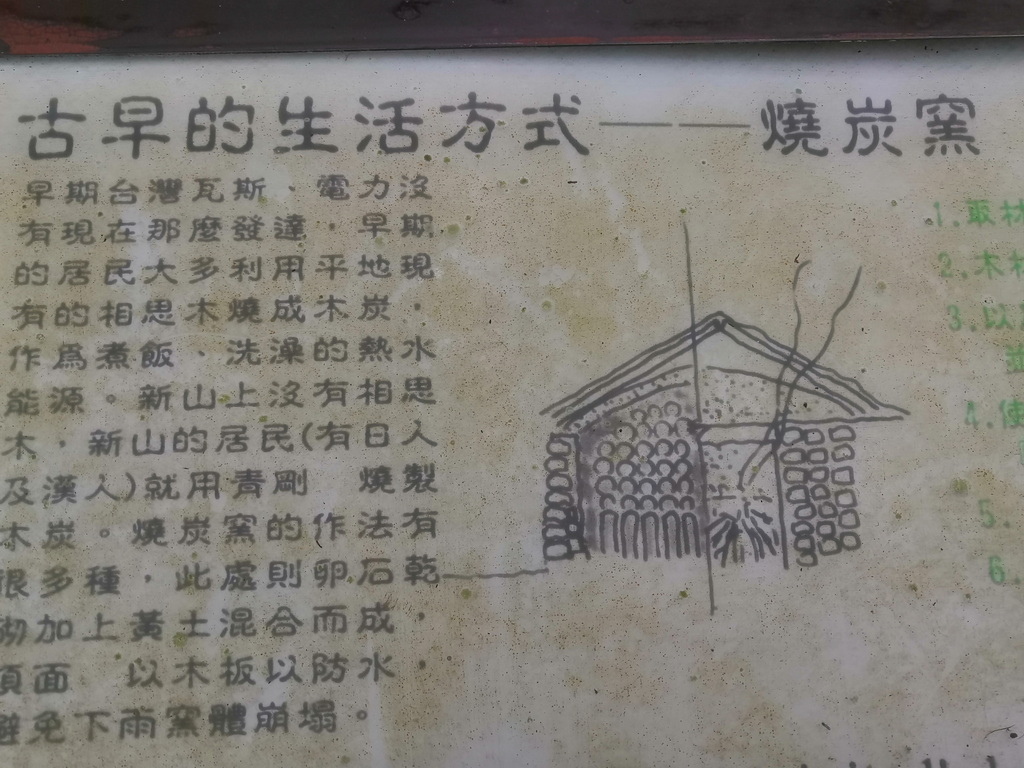 古早的生活方式──燒炭窯
早期台灣瓦斯、電力沒
有現在那麼發達，早期
的居民大多利用平地現
有的相思木燒成木炭，
作為煮飯、洗澡的熱水
能源。新山上沒有相思
木，新山的居民(有日人
及漢人)就用青剛　燒製
木炭。燒炭窯的作法有
很多種，此處則卵石乾
砌加上黃土混合而成，
頂面　以木板以防水
避免下雨窯體崩塌。
1.取材
2.木材
3.以
4.使
5.
6.